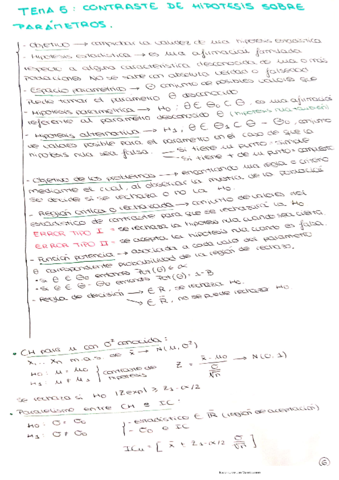 TEMA 5: CONTRASTE DE HIPÓTESIS SOBRE
PARÁMETROS.
- Objetivo → comprobar la validez de una hipótesis estadística
- Hipótesis estadística → es una afirmación formulada
respecto a alguna característica desconocida de una o más
poblaciones. No se sabe con absoluta verdad o falsedad
- Espacio paramétrico → Θ conjunto de posibles valores que
puede tomar el parámetro θ desconocido
- Hipótesis paramétrica H0: θ ∈ Θ0 ⊂ Θ, es una afirmación
referente al parámetro desconocido θ (hipótesis nula)
- Hipótesis alternativa → H1, θ ∈ Θ1 ⊂ Θ - Θ0, conjunto
de valores posible para el parámetro en el caso de que la
hipótesis nula sea falsa.
- Si tiene un punto: simple
- Si tiene + de un punto: compuesta
- Objetivo de los problemas → encontrar una regla o criterio
mediante el cual, al observar la muestra de la población
se decide si se rechaza o no la H0.
- Región crítica o de rechazo → conjunto de valores del
estadístico de contraste para que se rechazaría la H0
ERROR TIPO I = se rechaza la hipótesis nula cuando es cierta.
ERROR TIPO II = se acepta la hipótesis nula cuando es falsa.
- Función potencia → asociada a cada valor del parámetro
θ correspondiente probabilidad de la región de rechazo.
- Regla de decisión → ∈ R, se rechaza H0.
∈ R̄, no se puede rechazar H0.
• CH para μ con σ² conocida:
X1... Xn m.a.s de X → N(μ, σ²)
H0: μ = μ0
H1: μ ≠ μ0
contraste de
hipótesis
Z = x̄ - μ0 / σ/√n → N(0, 1)
se rechaza si H0 |Zexp| ≥ Z1-α/2
• Paralelismo entre CH e IC:
H0: σ = σ0
H1: σ ≠ σ0
- estadístico ∈ R̄ (región de aceptación)
- σ0 ∈ IC
ICμ = [x̄ ± Z1-α/2 σ/√n]
6